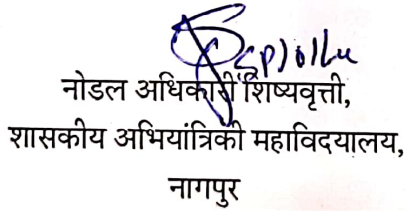 नोडल अधिकारी शिष्यवृत्ती,
शासकीय अभियांत्रिकी महाविदयालय,
नागपुर